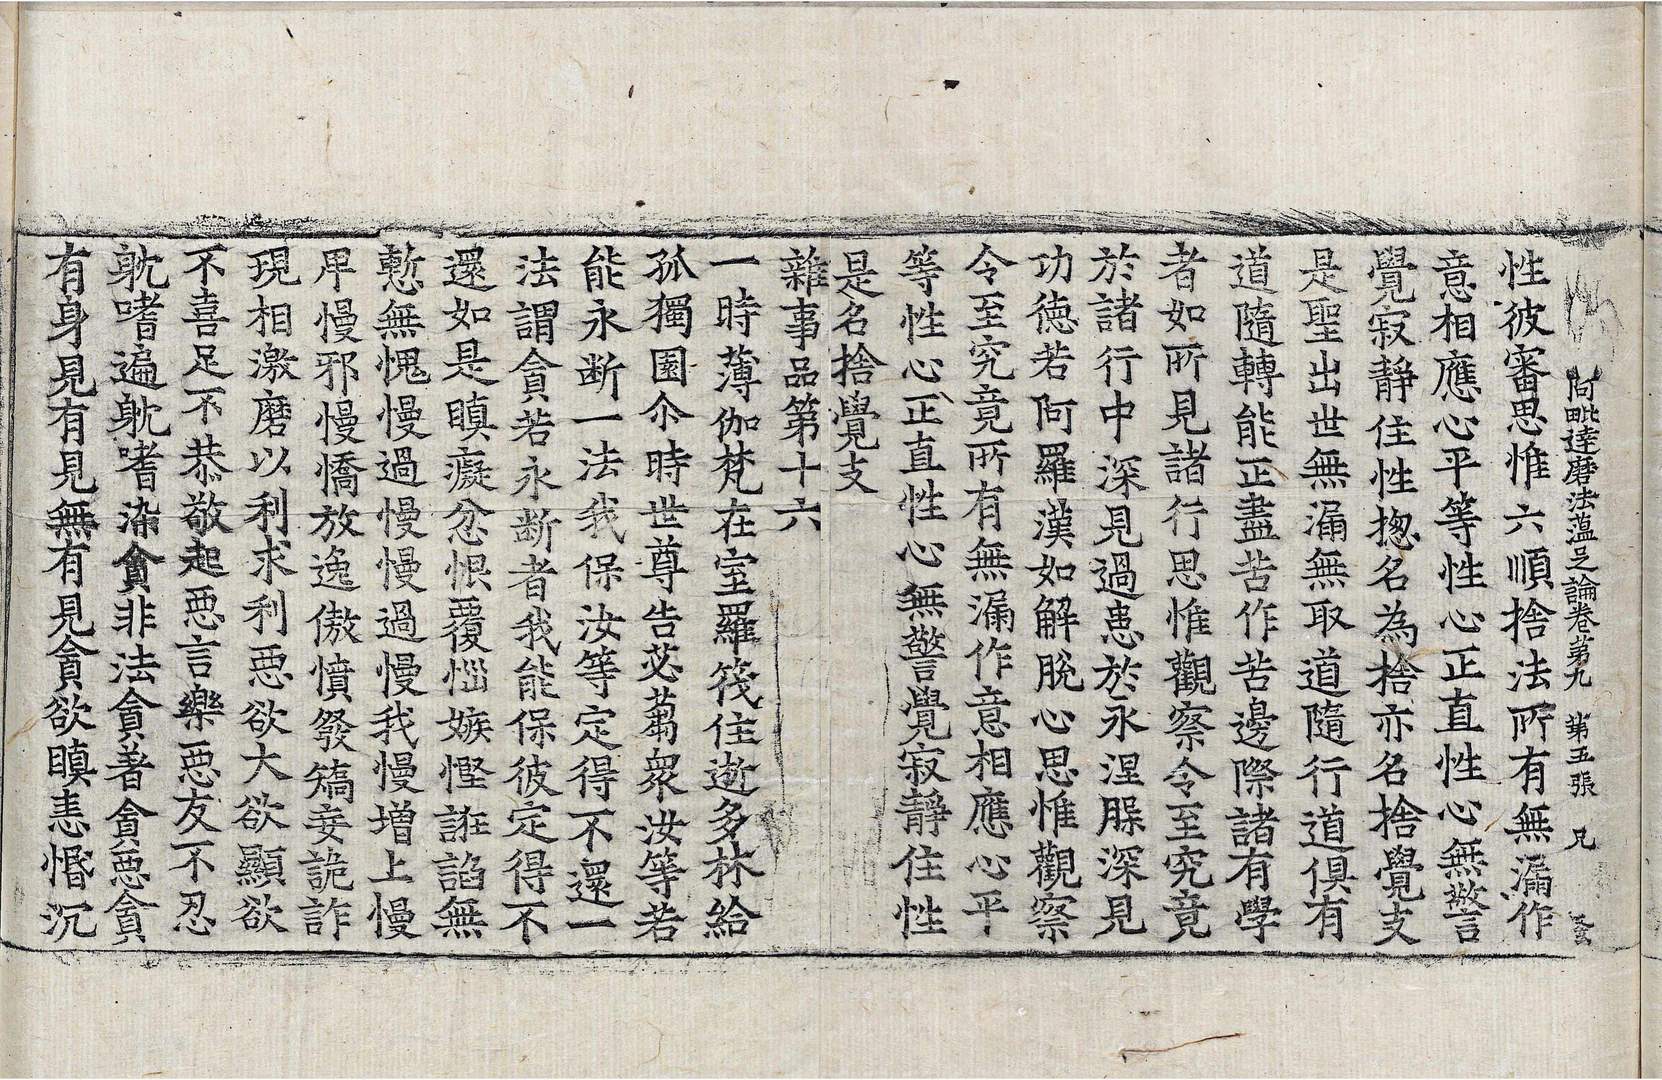 阿毗達磨法蘊足論卷第九 第五張 兄
性彼審思惟六順捨法所有無漏作
意相應心平等性心正直性心無警
覺寂靜住性揔名為捨亦名捨覺支
是聖出世無漏無取道隨行道俱有
道隨轉能正盡苦作苦邊際諸有學
者如所見諸行思惟觀察令至究竟
於諸行中深見過患於永涅槃深見
功德若阿羅漢如解脫心思惟觀察
令至究竟所有無漏作意相應心平
等性心正直性心無警覺寂靜住性
是名捨覺支
雜事品第十六
一時薄伽梵在室羅筏住逝多林給
孤獨園尒時世尊告苾蒭衆汝等若
能永断一法我保汝等定得不還一
法謂貪若永断者我能保彼定得不
還如是瞋癡忿恨覆惱嫉慳誑諂無
慙無愧慢過慢慢過慢我慢增上慢
卑慢邪慢憍放逸傲憤發矯妄詭詐
現相激磨以利求利惡欲大欲顯欲
不喜足不恭敬起惡言樂惡友不忍
躭嗜遍躭嗜染貪非法貪著貪惡貪
有身見有見無有見貪欲瞋恚惛沉